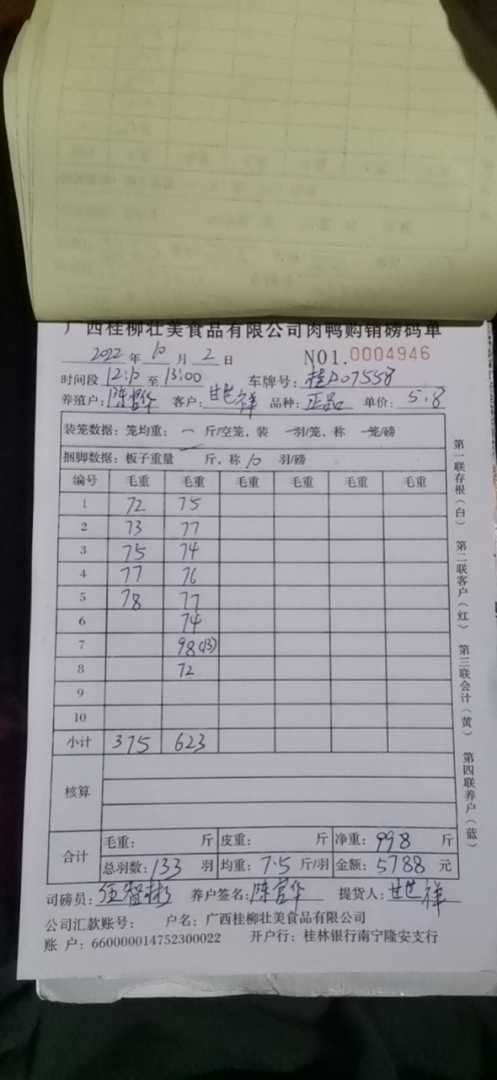 广西桂柳壮美食品有限公司肉鸭购销磅码单
2022 年 10 月 2 日 NO1.0004946
时间段 12:10 至 13:00 车牌号: 桂D07558
养殖户: 陈 华 客户: 甘世祥 品种: 正品 单价: 5.8
装笼数据: 笼均重: 一 斤/空笼, 装 一 羽/笼, 称 一 笼/磅
捆脚数据: 板子重量 斤, 称 10 羽/磅
编号 毛重 毛重 毛重 毛重 毛重 毛重
1 72 75
2 73 77
3 75 74
4 77 76
5 78 77
6 74
7 98(13)
8 72
9
10
小计 375 623
核算
合计 毛重: 斤 皮重: 斤 净重: 998 斤
总羽数: 133 羽 均重: 7.5 斤/羽 金额: 5788 元
司磅员: 养户签名: 陈 华 提货人: 甘世祥
公司汇款账号: 户名: 广西桂柳壮美食品有限公司
账 户: 660000014752300022 开户行: 桂林银行南宁隆安支行
第一联存根(白) 第二联客户(红) 第三联会计(黄) 第四联养户(蓝)